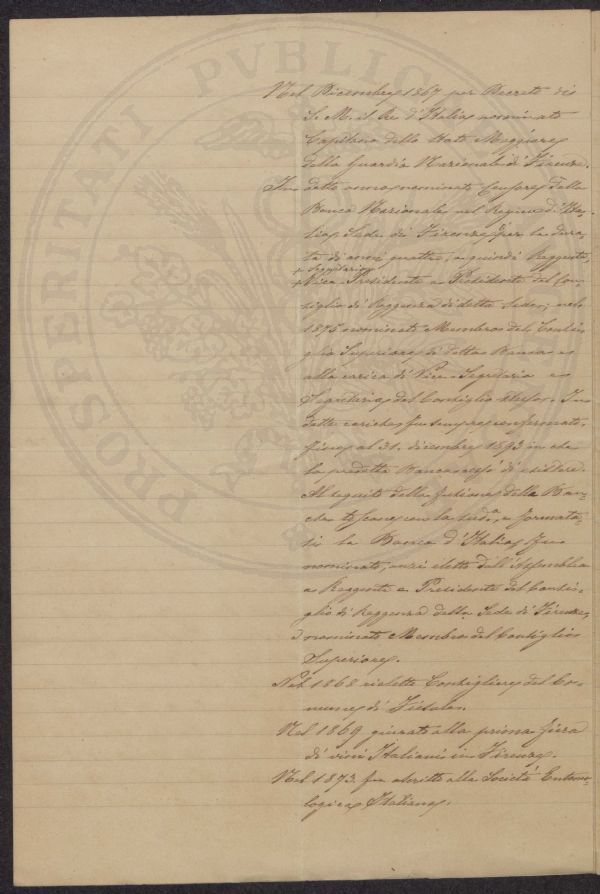 PROSPERITATI PVBLIC
Nel Dicembre 1867 per Decreto di
S. M. il Re d'Italia nominato
Capitano dello Stato Maggiore
della Guardia Nazionale di Firenze.
In detto anno nominato Censore della
Banca Nazionale nel Regno d'Ita-
lia, Sede di Firenze, per la dura-
ta di anni quattro, e quindi Reggente,
+ Segretario
+ Vice-Presidente e Presidente del Con-
siglio di Reggenza di detta Sede; nel
1875 nominato Membro del Consi-
glio Superiore di detta Banca e
alla carica di Vice-Segretario e
Segretario del Consiglio stesso. In
dette cariche fu sempre confermato,
fino al 31. dicembre 1893 in che
la predetta Banca cessò di esistere.
Al seguito della fusione delle Ban-
che toscane con la sud.a, e formata-
si la Banca d'Italia, fu
nominato, anzi eletto dall'Assemblea
a Reggente e Presidente del Consi-
glio di Reggenza della Sede di Firenze,
e nominato Membro del Consiglio
Superiore.
Nel 1868 rieletto Consigliere del Co-
mune di Fiesole.
Nel 1869 giurato alla prima fiera
di vini Italiani in Firenze.
Nel 1873 fu ascritto alla Società Entomo-
logica Italiana.